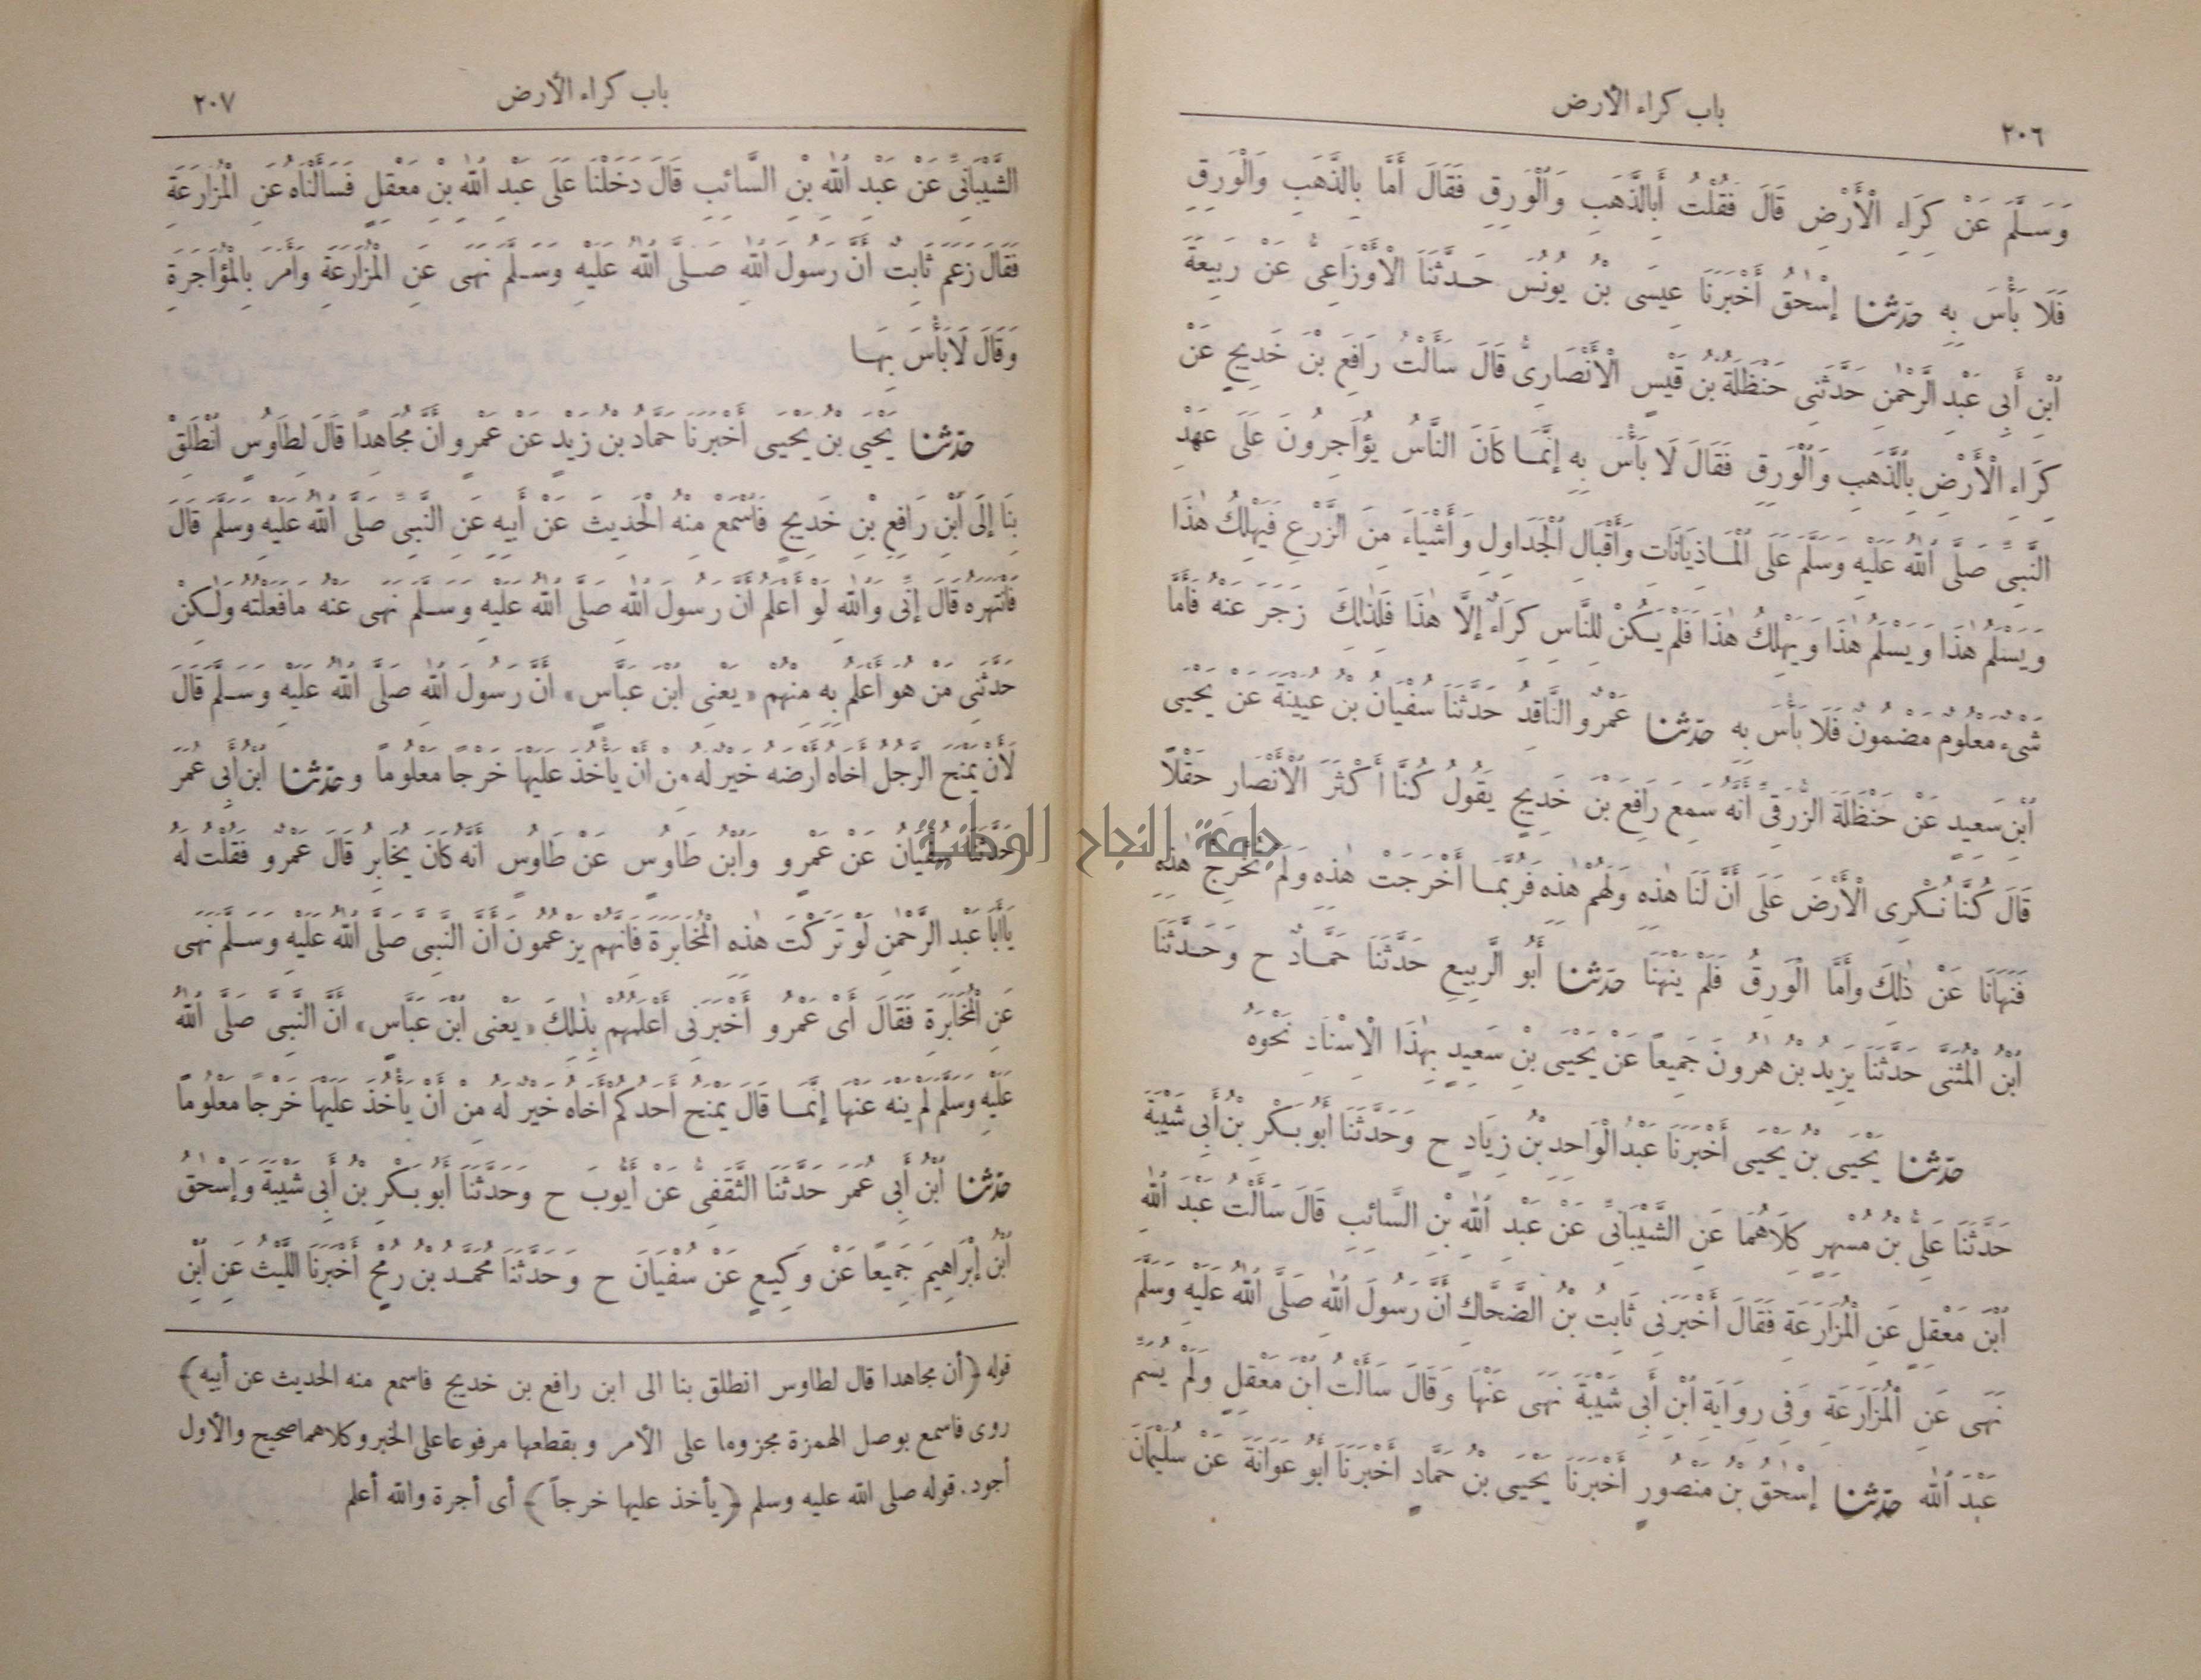 باب كراء الأرض
٢٠٦
وَسَلَّمَ عَنْ كِرَاءِ الْأَرْضِ قَالَ فَقُلْتُ أَبِالذَّهَبِ وَالْوَرِقِ فَقَالَ أَمَّا بِالذَّهَبِ وَالْوَرِقِ
فَلَا بَأْسَ بِهِ حدثنا إِسْحٰقُ أَخْبَرَنَا عِيسَى بْنُ يُونُسَ حَدَّثَنَا الْأَوْزَاعِىُّ عَنْ رَبِيعَةَ
ابْنِ أَبِى عَبْدِ الرَّحْمٰنِ حَدَّثَنِى حَنْظَلَةُ بْنُ قَيْسٍ الْأَنْصَارِىُّ قَالَ سَأَلْتُ رَافِعَ بْنَ خَدِيجٍ عَنْ
كِرَاءِ الْأَرْضِ بِالذَّهَبِ وَالْوَرِقِ فَقَالَ لَا بَأْسَ بِهِ إِنَّمَا كَانَ النَّاسُ يُؤَاجِرُونَ عَلَى عَهْدِ
النَّبِىِّ صَلَّى اللهُ عَلَيْهِ وَسَلَّمَ عَلَى الْمَاذِيَانَاتِ وَأَقْبَالِ الْجَدَاوِلِ وَأَشْيَاءَ مِنَ الزَّرْعِ فَيَهْلِكُ هٰذَا
وَيَسْلَمُ هٰذَا وَيَسْلَمُ هٰذَا وَيَهْلِكُ هٰذَا فَلَمْ يَكُنْ لِلنَّاسِ كِرَاءٌ إِلَّا هٰذَا فَلِذٰلِكَ زَجَرَ عَنْهُ فَأَمَّا
شَىْءٌ مَعْلُومٌ مَضْمُونٌ فَلَا بَأْسَ بِهِ حدثنا عَمْرٌو النَّاقِدُ حَدَّثَنَا سُفْيَانُ بْنُ عُيَيْنَةَ عَنْ يَحْيَى
ابْنِ سَعِيدٍ عَنْ حَنْظَلَةَ الزُّرَقِىِّ أَنَّهُ سَمِعَ رَافِعَ بْنَ خَدِيجٍ يَقُولُ كُنَّا أَكْثَرَ الْأَنْصَارِ حَقْلًا
قَالَ كُنَّا نُكْرِى الْأَرْضَ عَلَى أَنَّ لَنَا هٰذِهِ وَلَهُمْ هٰذِهِ فَرُبَّمَا أَخْرَجَتْ هٰذِهِ وَلَمْ تُخْرِجْ هٰذِهِ
فَنَهَانَا عَنْ ذٰلِكَ وَأَمَّا الْوَرِقُ فَلَمْ يَنْهَنَا حدثنا أَبُو الرَّبِيعِ حَدَّثَنَا حَمَّادٌ ح وَحَدَّثَنَا
ابْنُ الْمُثَنَّى حَدَّثَنَا يَزِيدُ بْنُ هٰرُونَ جَمِيعًا عَنْ يَحْيَى بْنِ سَعِيدٍ بِهٰذَا الْإِسْنَادِ نَحْوَهُ
حدثنا يَحْيَى بْنُ يَحْيَى أَخْبَرَنَا عَبْدُ الْوَاحِدِ بْنُ زِيَادٍ ح وَحَدَّثَنَا أَبُو بَكْرِ بْنُ أَبِى شَيْبَةَ
حَدَّثَنَا عَلِىُّ بْنُ مُسْهِرٍ كِلَاهُمَا عَنِ الشَّيْبَانِىِّ عَنْ عَبْدِ اللهِ بْنِ السَّائِبِ قَالَ سَأَلْتُ عَبْدَ اللهِ
ابْنَ مَعْقِلٍ عَنِ الْمُزَارَعَةِ فَقَالَ أَخْبَرَنِى ثَابِتُ بْنُ الضَّحَّاكِ أَنَّ رَسُولَ اللهِ صَلَّى اللهُ عَلَيْهِ وَسَلَّمَ
نَهَى عَنِ الْمُزَارَعَةِ وَفِى رِوَايَةِ ابْنِ أَبِى شَيْبَةَ نَهَى عَنْهَا وَقَالَ سَأَلْتُ ابْنَ مَعْقِلٍ وَلَمْ يُسَمِّ
عَبْدَ اللهِ حدثنا إِسْحٰقُ بْنُ مَنْصُورٍ أَخْبَرَنَا يَحْيَى بْنُ حَمَّادٍ أَخْبَرَنَا أَبُو عَوَانَةَ عَنْ سُلَيْمَانَ
باب كراء الأرض
٢٠٧
الشَّيْبَانِىِّ عَنْ عَبْدِ اللهِ بْنِ السَّائِبِ قَالَ دَخَلْنَا عَلَى عَبْدِ اللهِ بْنِ مَعْقِلٍ فَسَأَلْنَاهُ عَنِ الْمُزَارَعَةِ
فَقَالَ زَعَمَ ثَابِتٌ أَنَّ رَسُولَ اللهِ صَلَّى اللهُ عَلَيْهِ وَسَلَّمَ نَهَى عَنِ الْمُزَارَعَةِ وَأَمَرَ بِالْمُؤَاجَرَةِ
وَقَالَ لَا بَأْسَ بِهَا
حدثنا يَحْيَى بْنُ يَحْيَى أَخْبَرَنَا حَمَّادُ بْنُ زَيْدٍ عَنْ عَمْرٍو أَنَّ مُجَاهِدًا قَالَ لِطَاوُسٍ انْطَلِقْ
بِنَا إِلَى ابْنِ رَافِعِ بْنِ خَدِيجٍ فَاسْمَعْ مِنْهُ الْحَدِيثَ عَنْ أَبِيهِ عَنِ النَّبِىِّ صَلَّى اللهُ عَلَيْهِ وَسَلَّمَ قَالَ
فَانْتَهَرَهُ قَالَ إِنِّى وَاللهِ لَوْ أَعْلَمُ أَنَّ رَسُولَ اللهِ صَلَّى اللهُ عَلَيْهِ وَسَلَّمَ نَهَى عَنْهُ مَا فَعَلْتُهُ وَلٰكِنْ
حَدَّثَنِى مَنْ هُوَ أَعْلَمُ بِهِ مِنْهُمْ «يَعْنِى ابْنَ عَبَّاسٍ» أَنَّ رَسُولَ اللهِ صَلَّى اللهُ عَلَيْهِ وَسَلَّمَ قَالَ
لَأَنْ يَمْنَحَ الرَّجُلُ أَخَاهُ أَرْضَهُ خَيْرٌ لَهُ مِنْ أَنْ يَأْخُذَ عَلَيْهَا خَرْجًا مَعْلُومًا وحدثنا ابْنُ أَبِى عُمَرَ
حَدَّثَنَا سُفْيَانُ عَنْ عَمْرٍو وَابْنِ طَاوُسٍ عَنْ طَاوُسٍ أَنَّهُ كَانَ يُخَابِرُ قَالَ عَمْرٌو فَقُلْتُ لَهُ
يَا أَبَا عَبْدِ الرَّحْمٰنِ لَوْ تَرَكْتَ هٰذِهِ الْمُخَابَرَةَ فَإِنَّهُمْ يَزْعُمُونَ أَنَّ النَّبِىَّ صَلَّى اللهُ عَلَيْهِ وَسَلَّمَ نَهَى
عَنِ الْمُخَابَرَةِ فَقَالَ أَىْ عَمْرُو أَخْبَرَنِى أَعْلَمُهُمْ بِذٰلِكَ «يَعْنِى ابْنَ عَبَّاسٍ» أَنَّ النَّبِىَّ صَلَّى اللهُ
عَلَيْهِ وَسَلَّمَ لَمْ يَنْهَ عَنْهَا إِنَّمَا قَالَ يَمْنَحُ أَحَدُكُمْ أَخَاهُ خَيْرٌ لَهُ مِنْ أَنْ يَأْخُذَ عَلَيْهَا خَرْجًا مَعْلُومًا
حدثنا ابْنُ أَبِى عُمَرَ حَدَّثَنَا الثَّقَفِىُّ عَنْ أَيُّوبَ ح وَحَدَّثَنَا أَبُو بَكْرِ بْنُ أَبِى شَيْبَةَ وَإِسْحٰقُ
ابْنُ إِبْرَاهِيمَ جَمِيعًا عَنْ وَكِيعٍ عَنْ سُفْيَانَ ح وَحَدَّثَنَا مُحَمَّدُ بْنُ رُمْحٍ أَخْبَرَنَا اللَّيْثُ عَنِ ابْنِ
قوله ﴿أن مجاهدا قال لطاوس انطلق بنا الى ابن رافع بن خديج فاسمع منه الحديث عن أبيه﴾
روى فاسمع بوصل الهمزة مجزوما على الأمر وبقطعها مرفوعا على الخبر وكلاهما صحيح والأول
أجود. قوله صلى الله عليه وسلم ﴿يأخذ عليها خرجاً﴾ أى أجرة والله أعلم
جامعة النجاح الوطنية